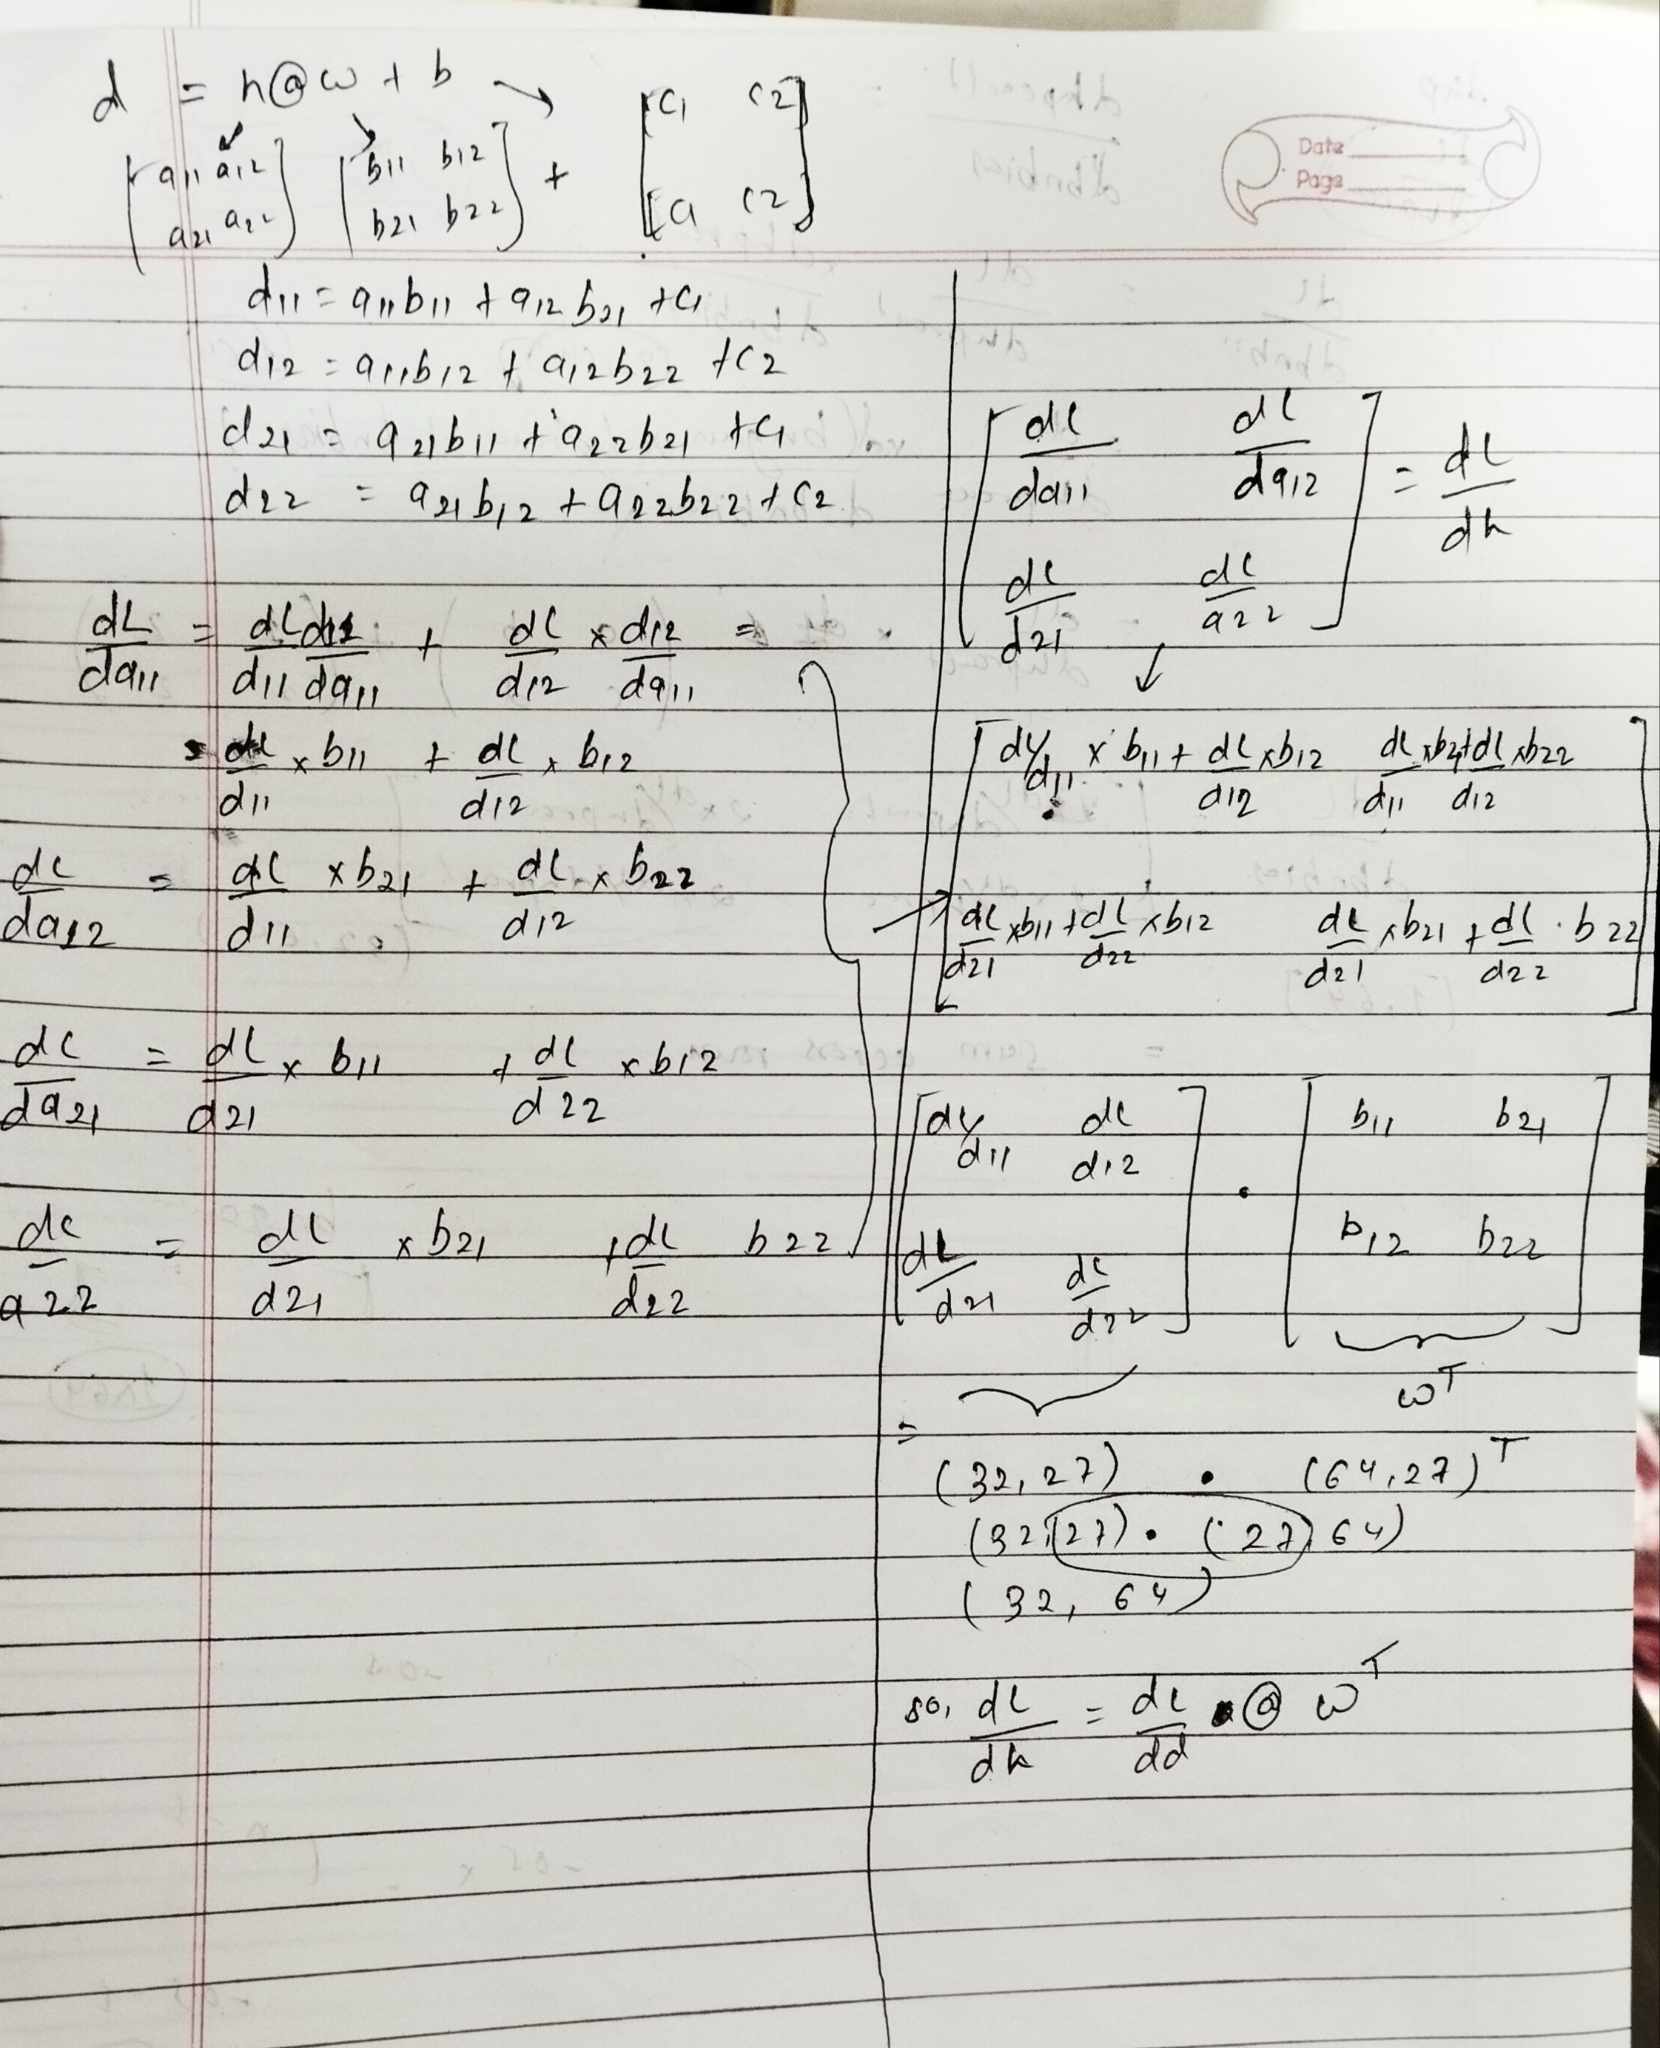 d = h@w + b → [c1 c2]
[a11 a12] [b11 b12] + 
[a21 a22] [b21 b22] [c1 c2]
Date
Page
d11 = a11b11 + a12b21 + c1
d12 = a11b12 + a12b22 + c2
d21 = a21b11 + a22b21 + c1
d22 = a21b12 + a22b22 + c2
dL/da11 = dL/d11 d11/da11 + dL/d12 × d12/da11 =
= dL/d11 × b11 + dL/d12 × b12
dL/da12 = dL/d11 × b21 + dL/d12 × b22
dL/da21 = dL/d21 × b11 + dL/d22 × b12
dL/a22 = dL/d21 × b21 + dL/d22 b22
[dL/da11 dL/da12] = dL/dh
[dL/d21 dL/a22]
↓
[dL/d11 × b11 + dL/d12 × b12 dL/d11 × b21 + dL/d12 × b22]
[dL/d21 × b11 + dL/d22 × b12 dL/d21 × b21 + dL/d22 · b22]
[dL/d11 dL/d12] · [b11 b21]
[dL/d21 dL/d22] [b12 b22]
wᵀ
=
(32,27) • (64,27)ᵀ
(32,27) • (27,64)
(32, 64)
so, dL/dh = dL/dd @ wᵀ